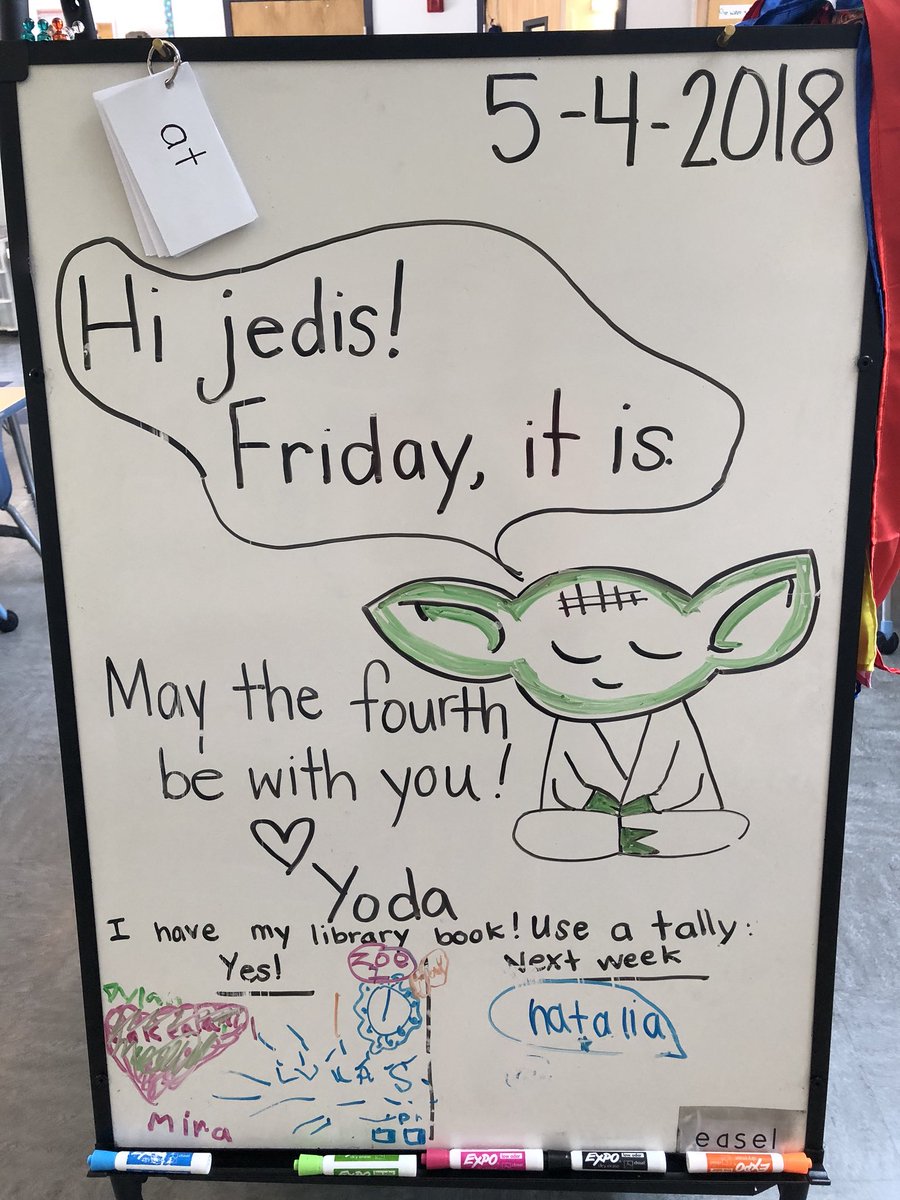 at
5-4-2018
Hi jedis!
Friday, it is.
May the fourth
be with you!
Yoda
I have my library book! Use a tally:
Yes!
Zoe
Next week
Dylan
natalia
LUKAS
Mira
easel
EXPO
EXPO
EXPO
EXPO
EXPO